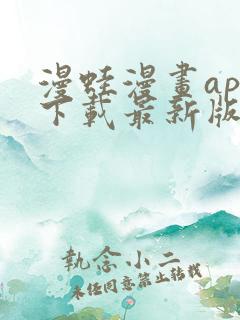 漫蛙漫畫ap
下載最新版
執念小二
未经同意禁止转载